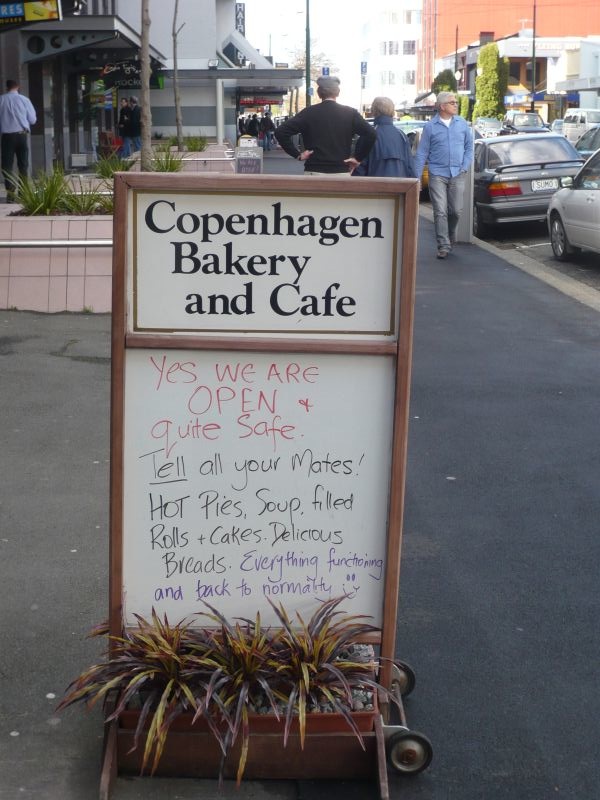 HAIR
Copenhagen
Bakery
and Cafe
Yes WE ARE
OPEN +
quite Safe.
Tell all your Mates!
HOT Pies, Soup, filled
Rolls + Cakes. Delicious
Breads. Everything functioning
and back to normality
SUMO